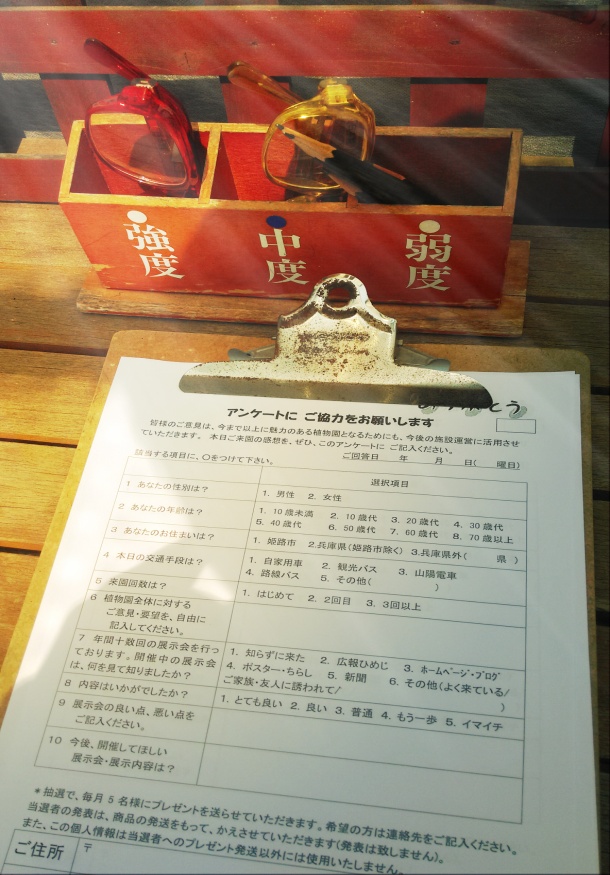 強度
中度
弱度
アンケートに ご協力をお願いします
皆様のご意見は、今まで以上に魅力のある植物園となるためにも、今後の施設運営に活用させ
ていただきます。 本日ご来園の感想を、ぜひ、このアンケートに ご記入ください。
ご回答日 年 月 日( 曜日)
該当する項目に、○をつけて下さい。
選択項目
1 あなたの性別は?
1. 男性 2. 女性
2 あなたの年齢は?
1. 10歳未満 2. 10歳代 3. 20歳代 4. 30歳代
5. 40歳代 6. 50歳代 7. 60歳代 8. 70歳以上
3 あなたのお住まいは?
1. 姫路市 2.兵庫県(姫路市除く) 3.兵庫県外( 県 )
4 本日の交通手段は?
1. 自家用車 2. 観光バス 3. 山陽電車
4. 路線バス 5. その他( )
5 来園回数は?
1. はじめて 2. 2回目 3. 3回以上
6 植物園全体に対する
ご意見・要望を、自由に
記入してください。
7 年間十数回の展示会を行っ
ております。開催中の展示会
は、何を見て知りましたか?
1. 知らずに来た 2. 広報ひめじ 3. ホームページ・ブログ
4. ポスター・ちらし 5. 新聞 6. その他(よく来ている/
ご家族・友人に誘われて/ )
8 内容はいかがでしたか?
1. とても良い 2. 良い 3. 普通 4. もう一歩 5. イマイチ
9 展示会の良い点、悪い点を
ご記入ください。
10 今後、開催してほしい
展示会・展示内容は?
*抽選で、毎月5名様にプレゼントを送らせていただきます。希望の方は連絡先をご記入ください。
当選者の発表は、商品の発送をもって、かえさせていただきます(発表は致しません)。
また、この個人情報は当選者へのプレゼント発送以外には使用いたしません。
ご住所 〒